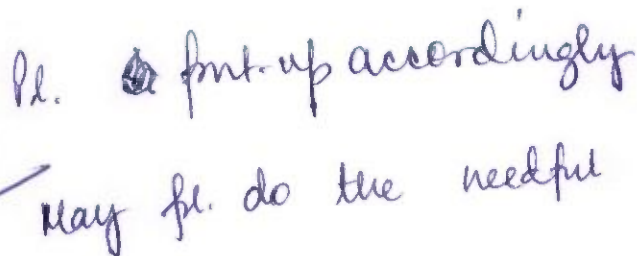 Pl. put-up accordingly
May pl. do the needful